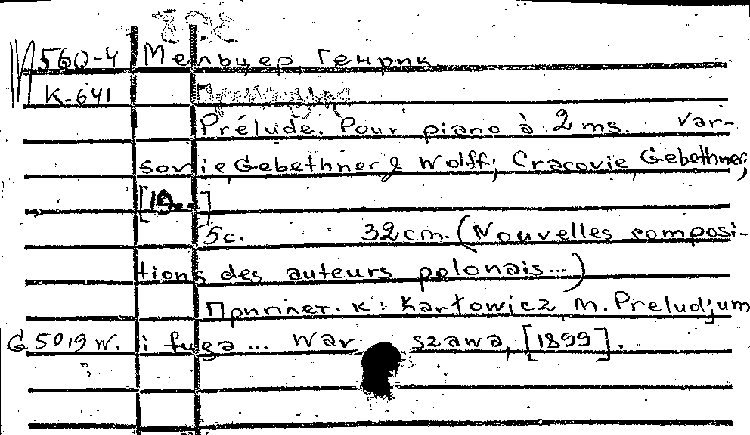 560-4 Мельцер, Генрик
К-641
Prélude. Pour piano à 2 ms. Var-
sovie, Gebethner & Wolff; Cracovie, Gebethner,
5c. 32 cm. (Nouvelles composi-
tions des auteurs polonais...)
Приплет. к: Karłowicz, M. Preludjum
G. 5019 W. i fuga... War szawa, [1899].